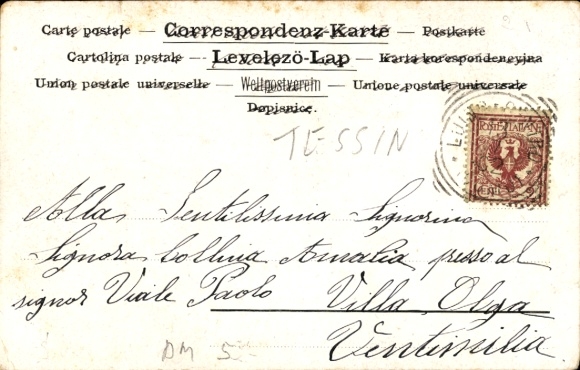 Carte postale — Correspondenz-Karte — Postkarte
Cartolina postale — Levelező-Lap — Karta korespondencyjna
Union postale universelle — Weltpostverein — Unione postale universale
Dopisnice.
TESSIN
POSTE ITALIANE
Alla Gentilissima Signorina
Signora Collina Amalia presso al
signor Viale Paolo Villa Olga
Ventimilia
DM 5.-